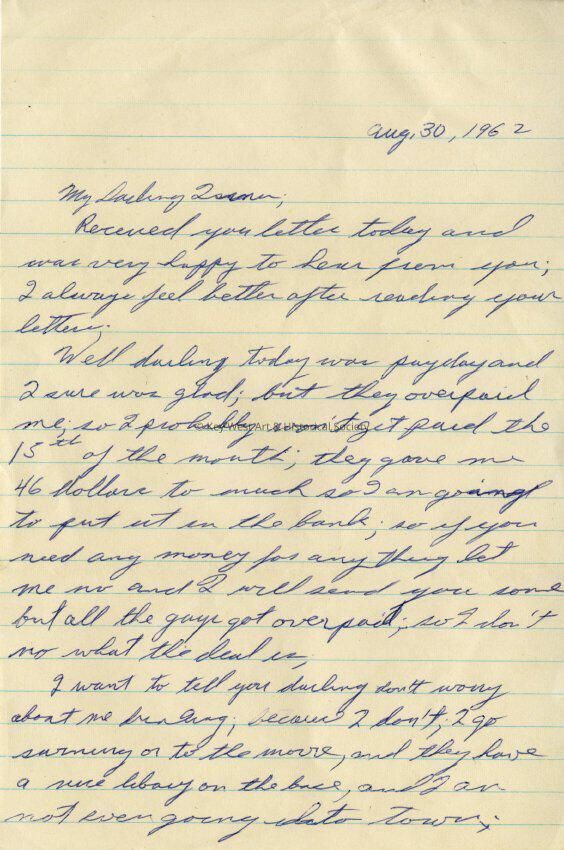 Aug. 30, 1962
My Darling
Received you letter today and
was very happy to hear from you;
I always feel better after reading your
letters;
Well darling today was payday and
I sure was glad; but they overpaid
me; so I probally won't get paid the
© Key West Art & Historical Society
15th of the month; they gave me
46 dollars to much so I an going
to put it in the bank; so if you
need any money for anything let
me no and I will send you some
but all the guys got overpaid; so I don't
no what the deal is;
I want to tell you darling don't worry
about me drinking; because I don't; I go
swming or to the movie, and they have
a nice libary on the base, and I an
not even going into town;